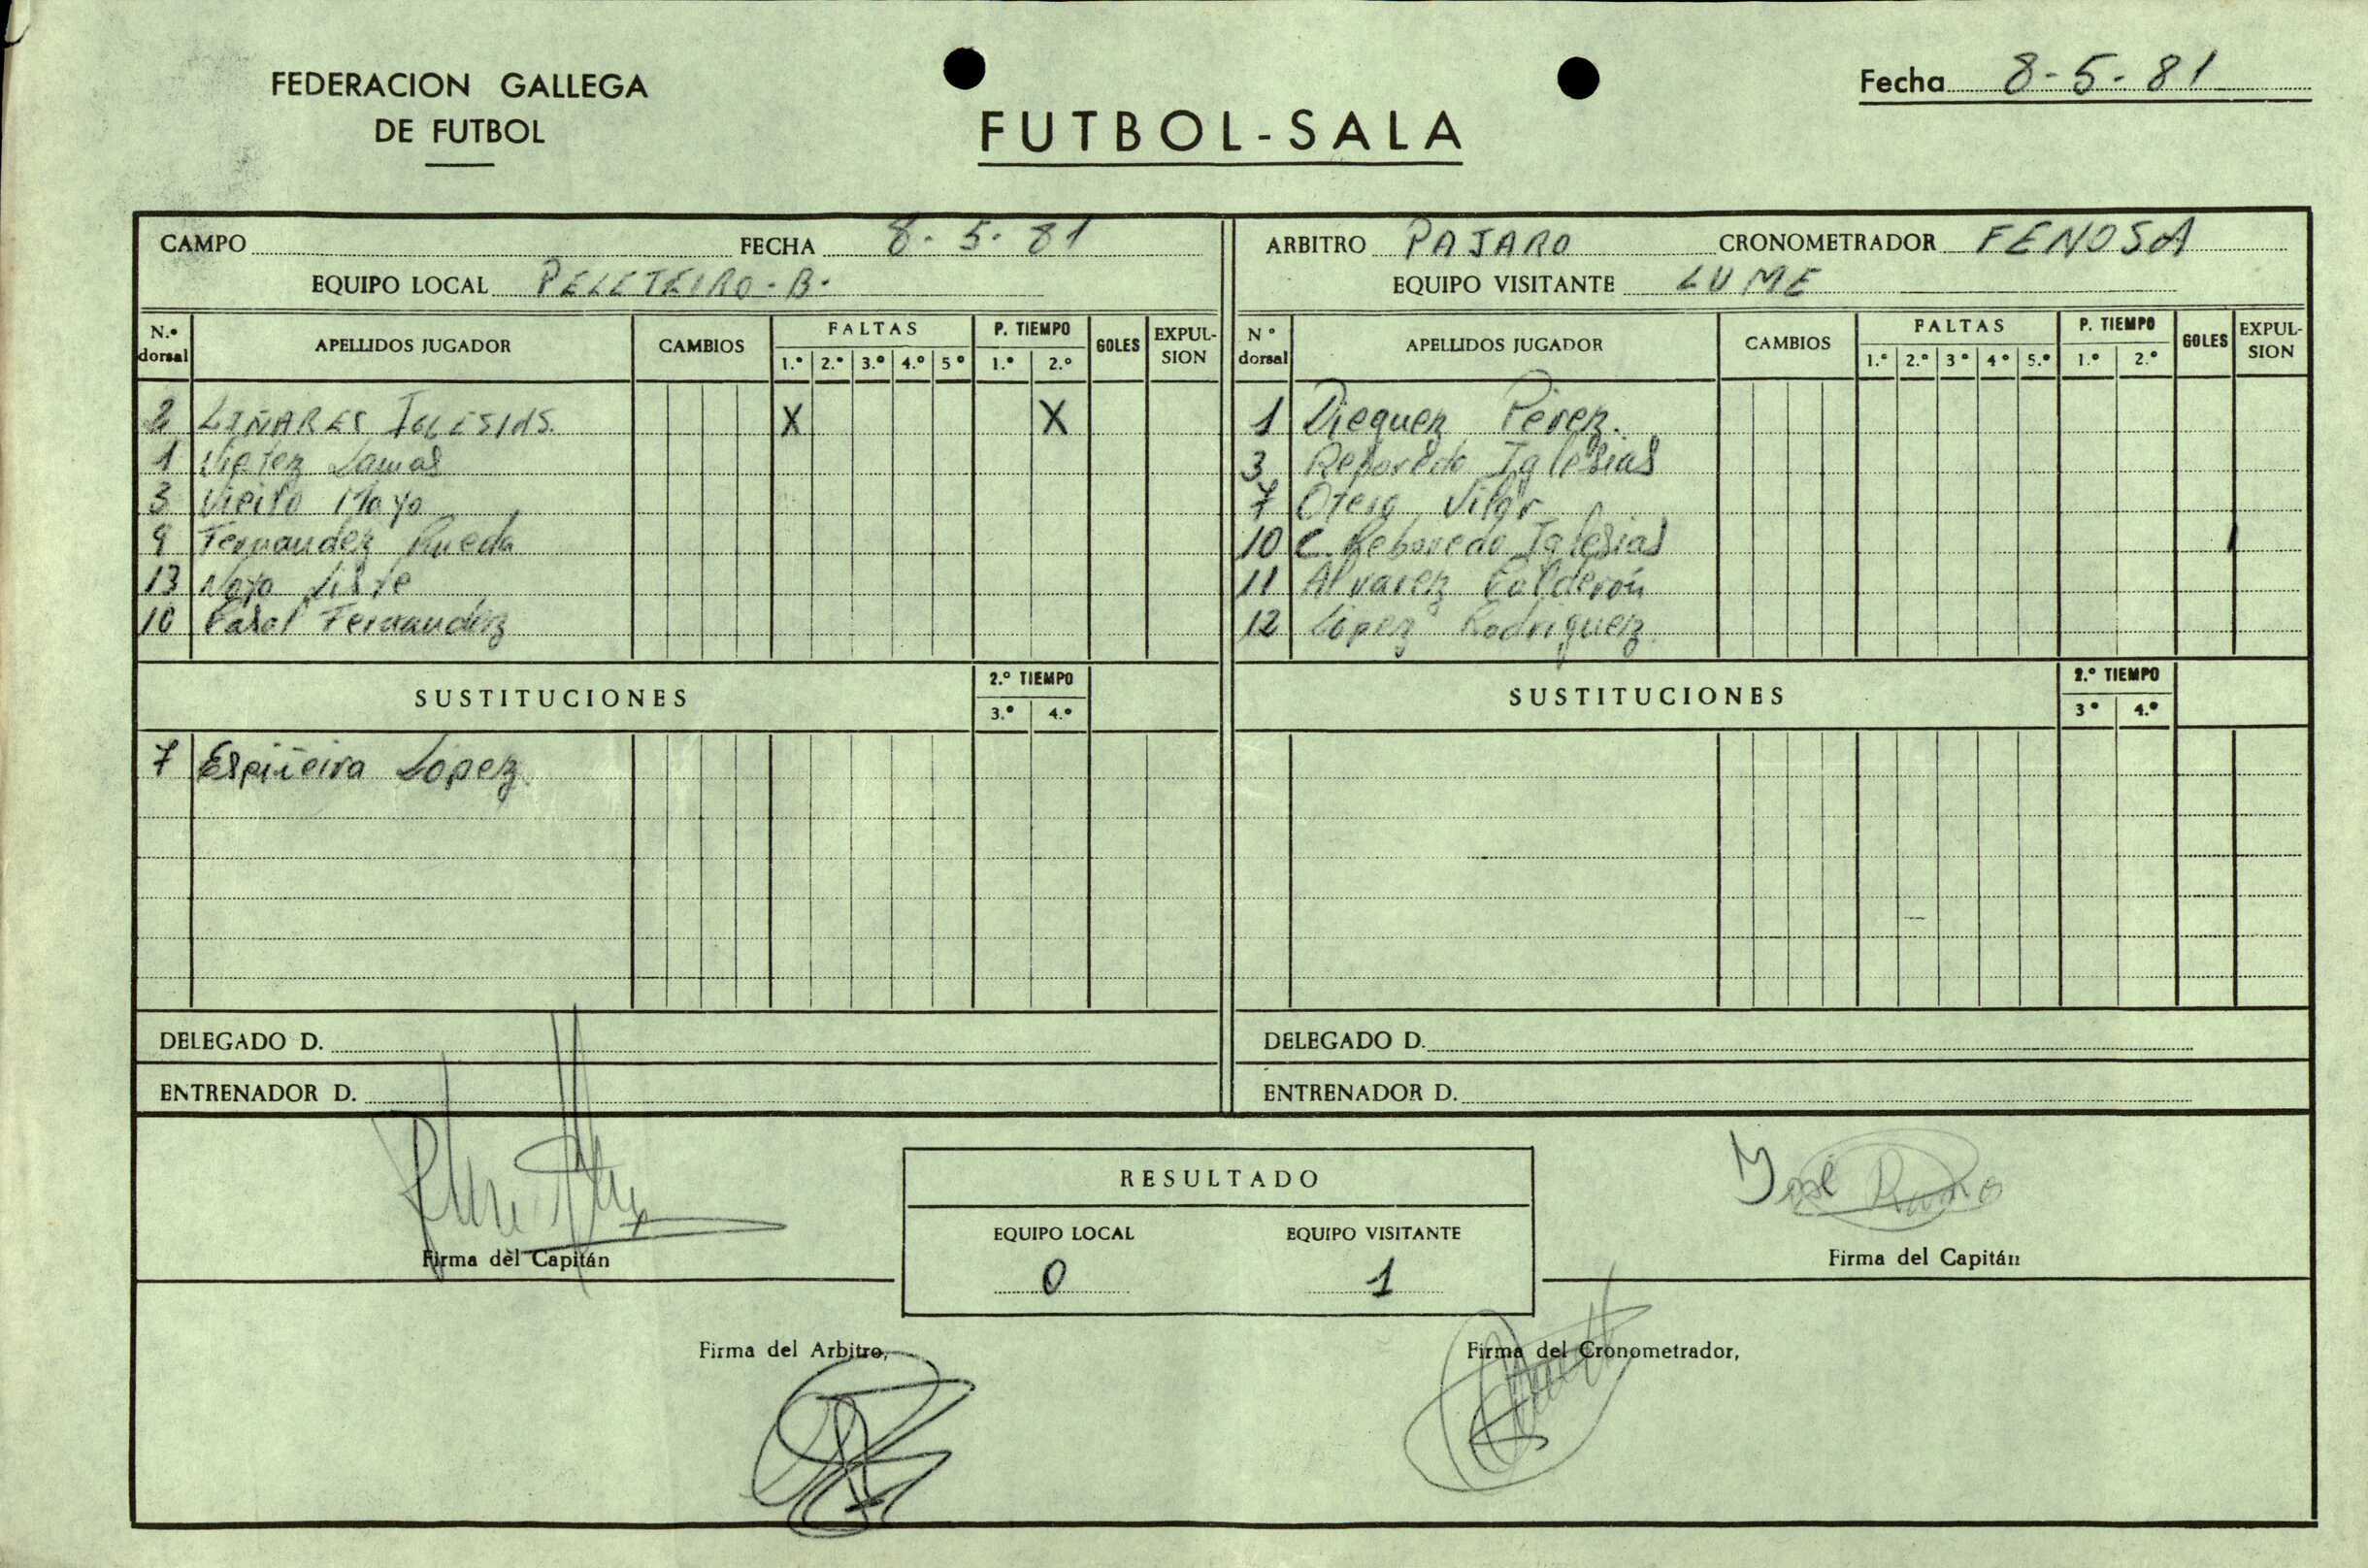 FEDERACION GALLEGA
DE FUTBOL
FUTBOL-SALA
Fecha 8-5-81
CAMPO FECHA 8-5-81
EQUIPO LOCAL PELETEIRO-B-
N.º dorsal APELLIDOS JUGADOR CAMBIOS FALTAS 1.º 2.º 3.º 4.º 5º P. TIEMPO 1.º 2.º GOLES EXPULSION
2 LIÑARES IGLESIAS. X X
1 Lamas
3 Vieito Mayo
9 Fernandez Rueda
13 Noya Liste
10 Fernandez
SUSTITUCIONES 2.º TIEMPO 3.º 4.º
7 Espiñeira Lopez.
DELEGADO D.
ENTRENADOR D.
ARBITRO PAJARO CRONOMETRADOR FENOSA
EQUIPO VISITANTE LUME
Nº dorsal APELLIDOS JUGADOR CAMBIOS FALTAS 1.º 2.º 3º 4º 5.º P. TIEMPO 1.º 2.º GOLES EXPULSION
1 Dieguez Pérez.
3 Reboredo Iglesias
7 Otero Vilar
10 C. Reboredo Iglesias
11 Alvarez Calderón
12 López Rodriguez.
SUSTITUCIONES 2.º TIEMPO 3º 4.º
DELEGADO D.
ENTRENADOR D.
Firma del Capitán
RESULTADO
EQUIPO LOCAL EQUIPO VISITANTE
0 1
José
Firma del Capitán
Firma del Arbitro,
Firma del Cronometrador,